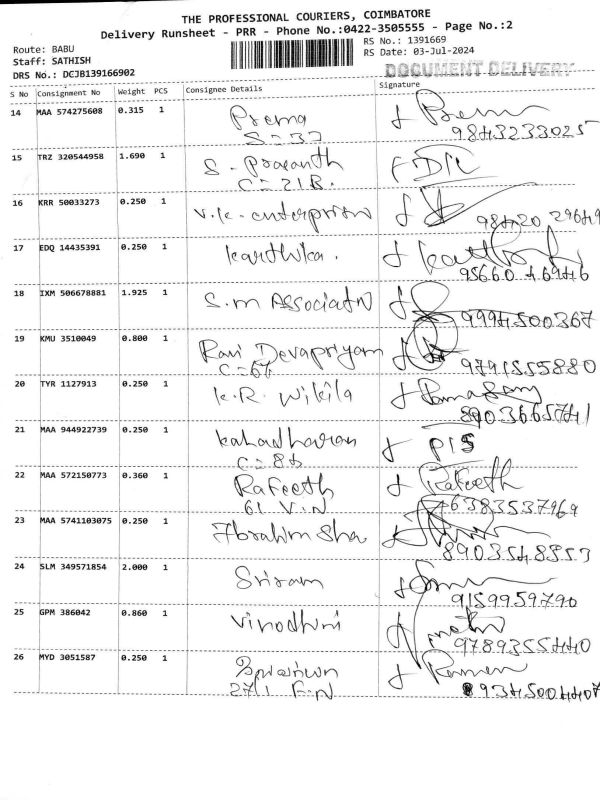 THE PROFESSIONAL COURIERS, COIMBATORE
Delivery Runsheet - PRR - Phone No.:0422-3505555 - Page No.:2
Route: BABU
Staff: SATHISH
DRS No.: DCJB139166902
RS No.: 1391669
RS Date: 03-Jul-2024
DOCUMENT DELIVERY
S No Consignment No Weight PCS Consignee Details Signature
14 MAA 574275608 0.315 1 Prema
S-32 9843233025
15 TRZ 320544958 1.690 1 S. Prasanth
C-21B.
16 KRR 50033273 0.250 1 V.K. enterprises
98420 29649
17 EDQ 14435391 0.250 1 Karthika.
95660 46946
18 IXM 506678881 1.925 1 S.M Associates
9994500367
19 KMU 3510049 0.800 1 Ravi Devapriyam
C-64 9791555880
20 TYR 1127913 0.250 1 K.R. Wikila
8903665741
21 MAA 944922739 0.250 1
C-84
22 MAA 572150773 0.360 1 Rafeeth Rafeeth
61 V.N 6383537969
23 MAA 5741103075 0.250 1 Ibrahim Sha
8903548553
24 SLM 349571854 2.000 1 Sriram
9159959790
25 GPM 386042 0.860 1 Vinodhini
9789355440
26 MYD 3051587 0.250 1 Raman
27/1 F.N 9345004407